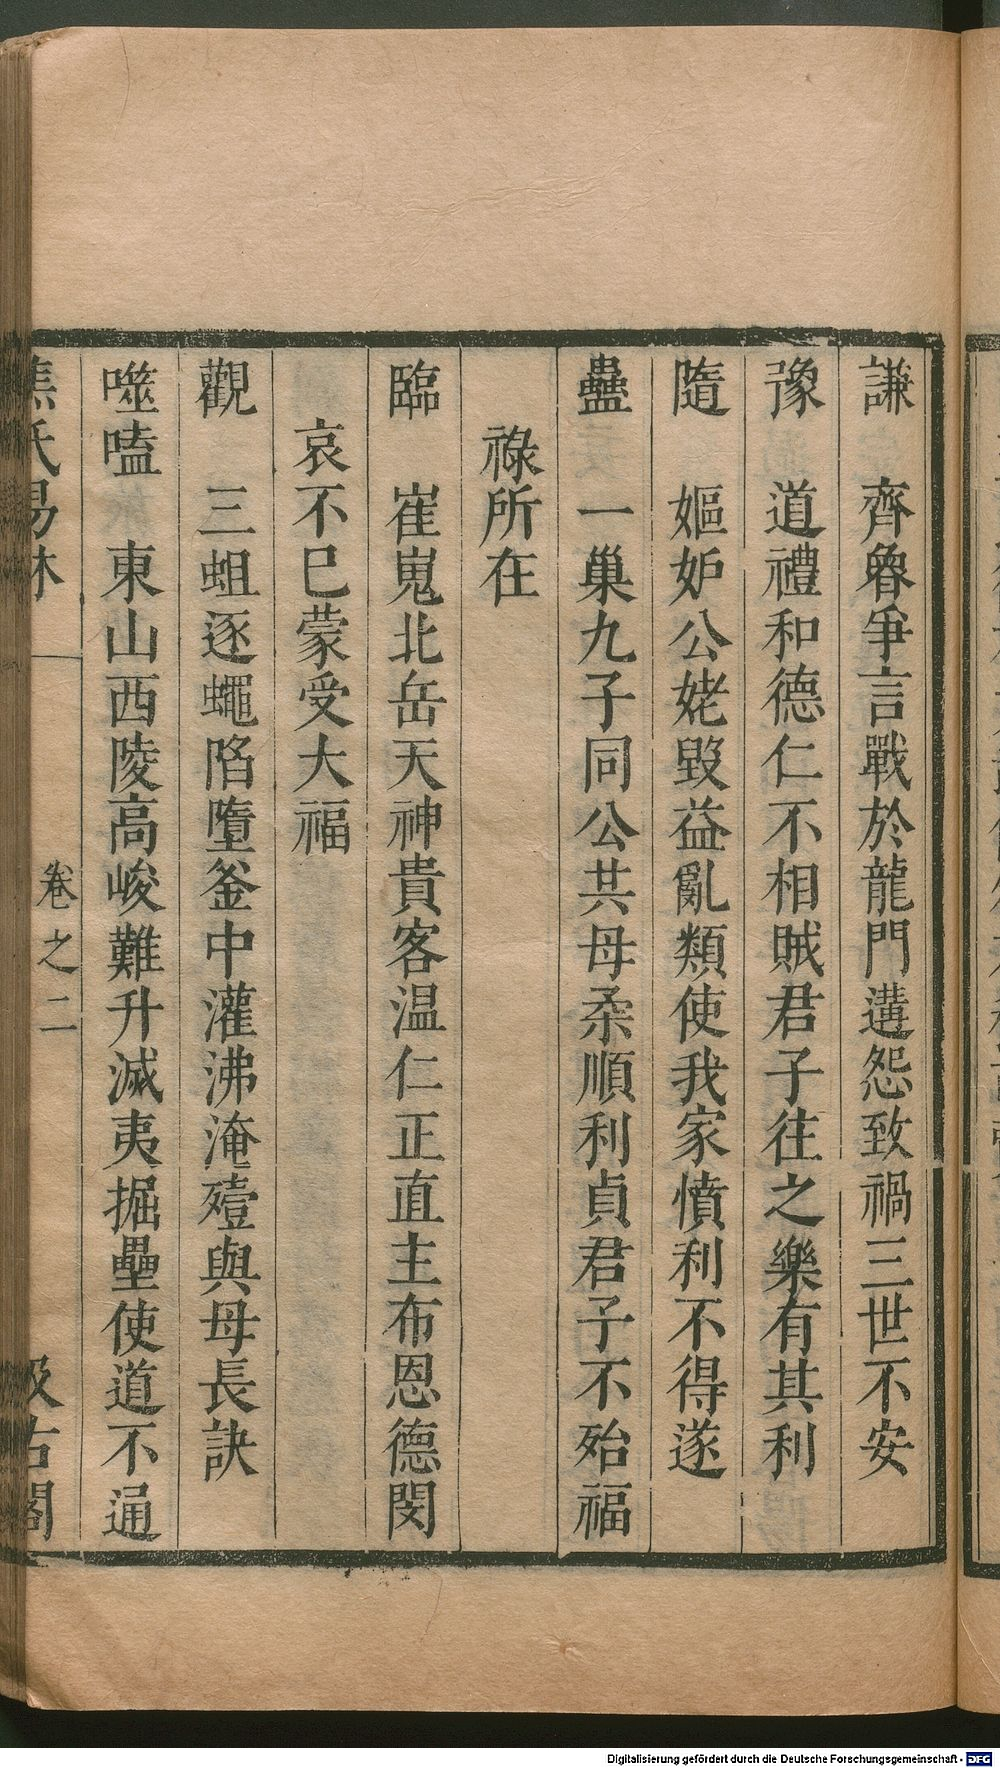 謙　齊魯爭言戰於龍門遘怨致禍三世不安
豫　道禮和德仁不相賊君子往之樂有其利
隨　嫗妒公姥毀益亂類使我家憤利不得遂
蠱　一巢九子同公共母柔順利貞君子不殆福
祿所在
臨　崔嵬北岳天神貴客温仁正直主布恩德閔
哀不巳蒙受大福
觀　三蛆逐蠅陷墮釜中灌沸淹殪與母長訣
噬嗑　東山西陵高峻難升滅夷掘壘使道不通
焦氏易林　卷之二　汲古閣
Digitalisierung gefördert durch die Deutsche Forschungsgemeinschaft - DFG